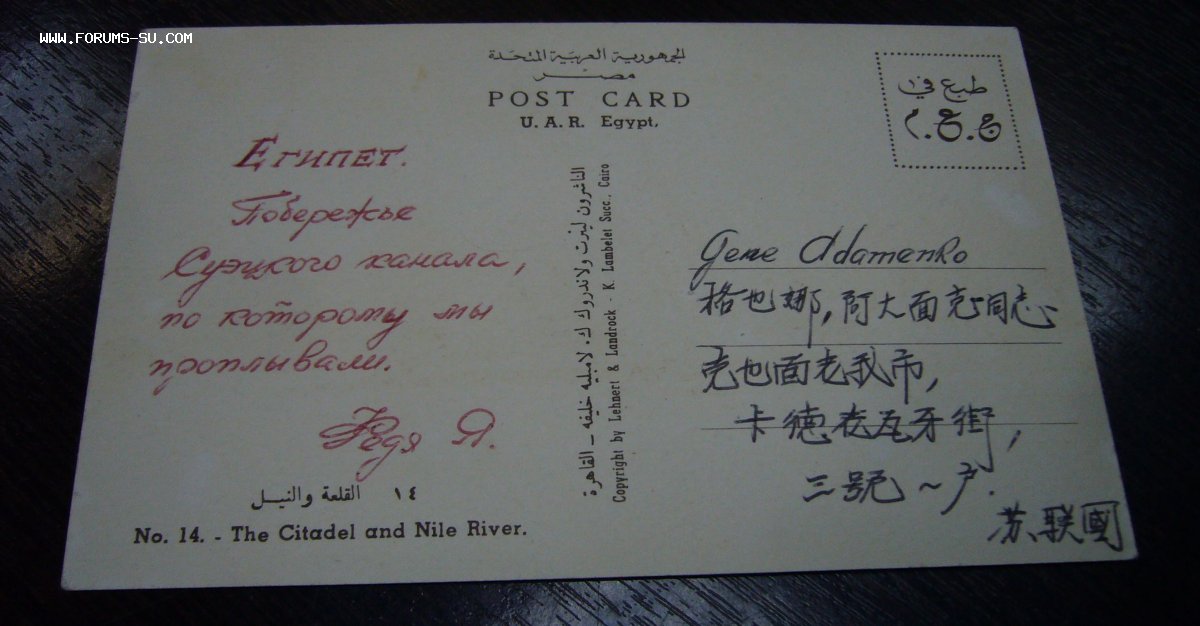 WWW.FORUMS-SU.COM
الجمهورية العربية المتحدة
مصر
POST CARD
U. A. R. Egypt.
طبع في
ج.ع.م
Египет.
Побережье
Суэцкого канала,
по которому мы
проплывали.
Федя Я.
١٤ القلعة والنيل
No. 14. - The Citadel and Nile River.
الناشرون لينرت ولاندروك ك. لامبليه خليفه - القاهرة
Copyright by Lehnert & Landrock - K Lambelet Succ. Cairo
Gene Adamenko
格也娜, 阿大面克同志
克也面老我市,
卡德 瓦牙街,
三號 户.
苏联國